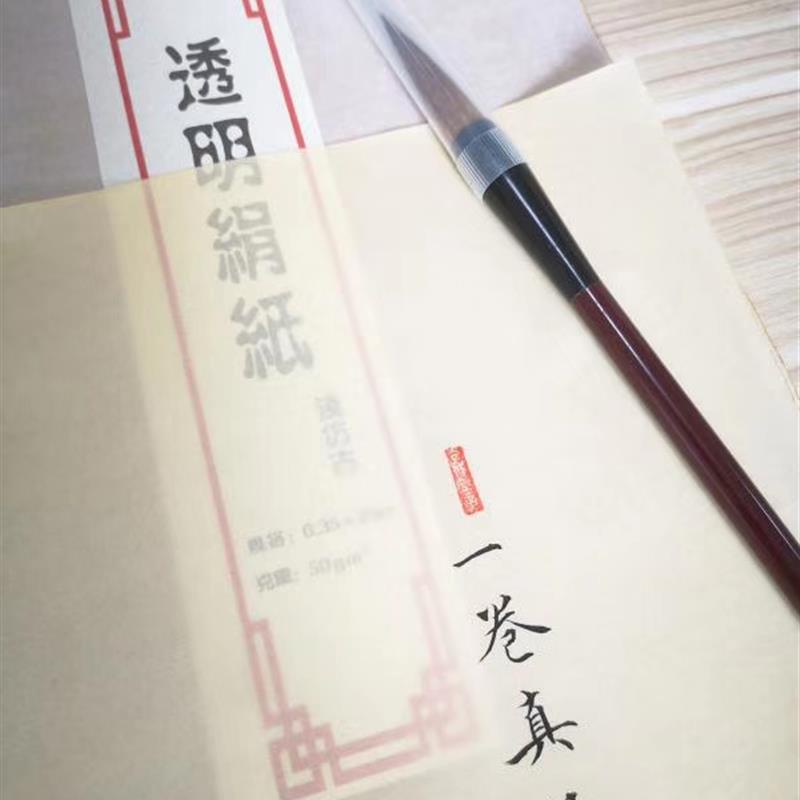 透明絹紙
淺仿古
規格：0.35×
克重：50g/m²
一卷真